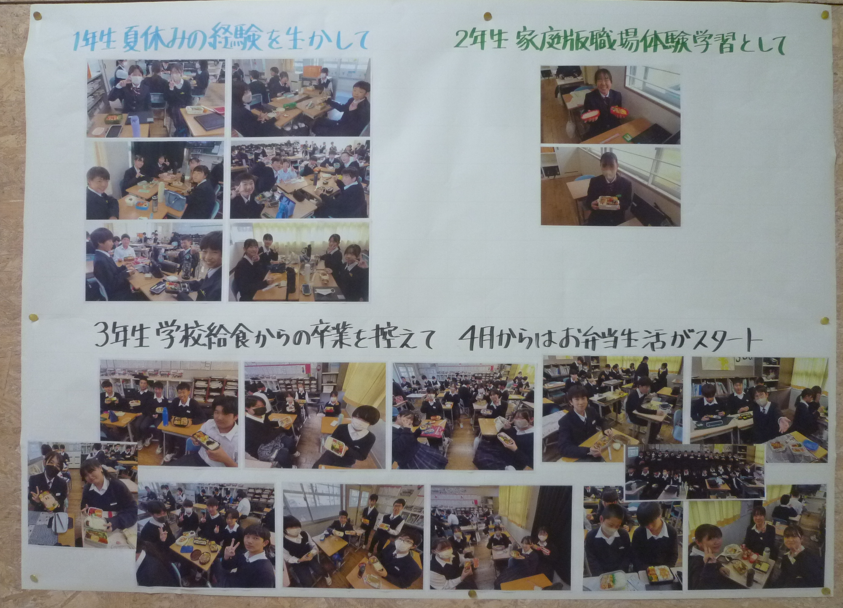 1年生 夏休みの経験を生かして
2年生 家庭版職場体験学習として
3年生 学校給食からの卒業を控えて 4月からはお弁当生活がスタート